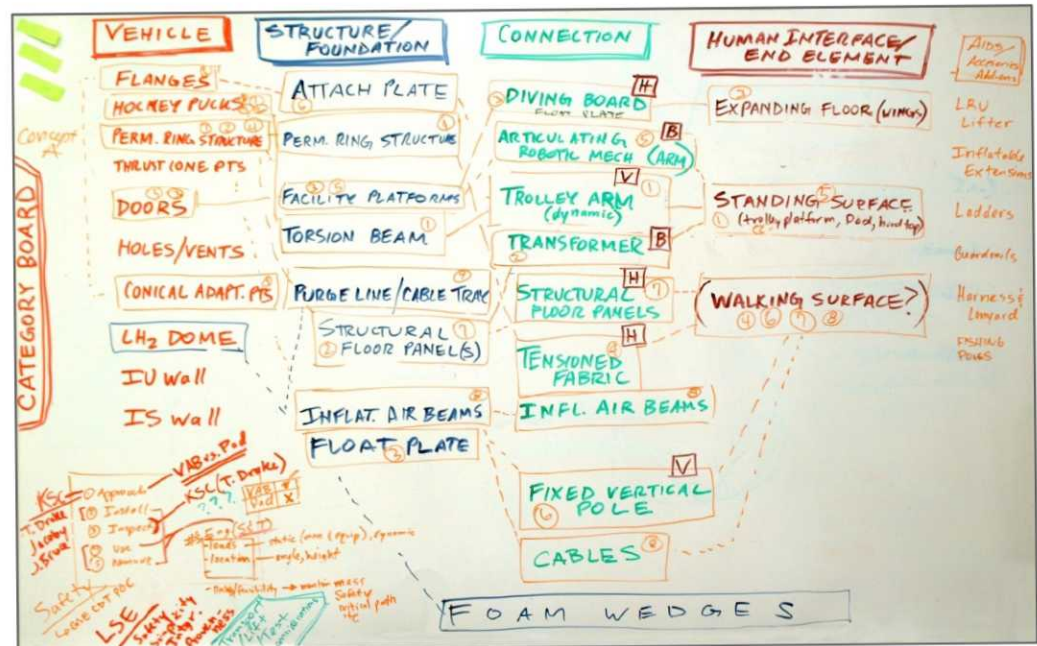 CATEGORY BOARD
VEHICLE
FLANGES
HOCKEY PUCKS
PERM. RING STRUCTURE
THRUST CONE PTS
DOORS
HOLES/VENTS
CONICAL ADAPT. PTS
LH2 DOME
IU Wall
IS Wall
Concept
STRUCTURE/
FOUNDATION
ATTACH PLATE
6
PERM. RING STRUCTURE
4
FACILITY PLATFORMS
TORSION BEAM 1
PURGE LINE/CABLE TRAY
STRUCTURAL 7
2 FLOOR PANEL(S)
INFLAT. AIR BEAMS
FLOAT PLATE
3
CONNECTION
H
DIVING BOARD
FLOAT PLATE
B
ARTICULATING 5
ROBOTIC MECH (ARM)
V
TROLLEY ARM 1
(dynamic)
TRANSFORMER B
2
H
STRUCTURAL 7
FLOOR PANELS
H
TENSIONED
FABRIC
INFL. AIR BEAMS
V
FIXED VERTICAL
6 POLE
CABLES 8
FOAM WEDGES
HUMAN INTERFACE/
END ELEMENT
EXPANDING FLOOR (WINGS)
STANDING SURFACE
1 (trolly platform, Pod,
(WALKING SURFACE?)
4 6 7 8
AIDS/
Accessories
Add-ons
LRU
Lifter
Inflatable
Extensions
Ladders
Guardrails
Harness &
Lanyard
FISHING
POLES
VAB vs. Pod
KSC Approach
KSC (T. Drake)
? ? ?
VAB
Pad X
T. Drake
Jacoby
J. Bruce
Install
Inspect
Use
Remove
- loads static (arm (equip), dynamic
- location angle, height
mass
Safety
critical path
etc
Safety
LSE
Safety
Simplicity
Transport
/Lift
/Test